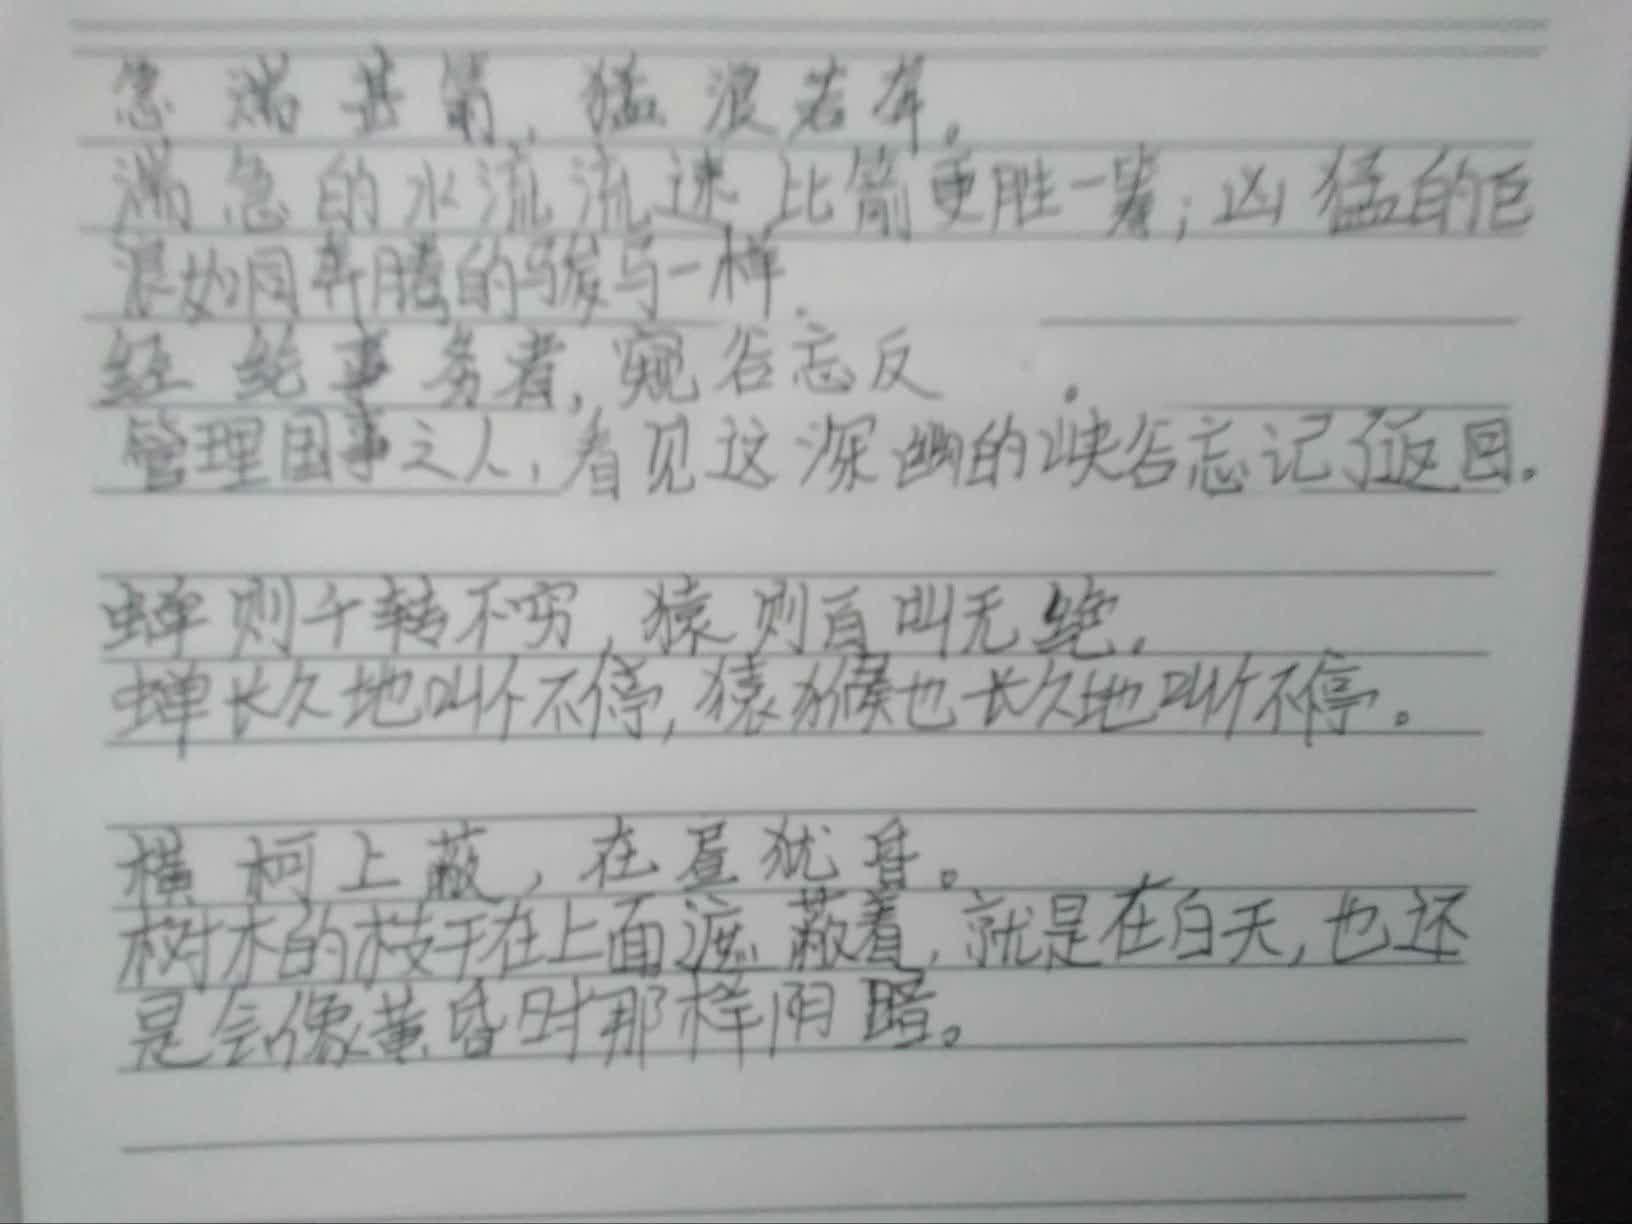 急湍甚箭，猛浪若奔。
湍急的水流流速比箭更胜一筹；凶猛的巨
浪如同奔腾的骏马一样.
经纶事务者，窥谷忘反。
管理国事之人，看见这深幽的峡谷忘记了返回。
蝉则千转不穷，猿则百叫无绝.
蝉长久地叫个不停，猿猴也长久地叫个不停。
横柯上蔽，在昼犹昏。
树木的枝干在上面遮蔽着，就是在白天，也还
是会像黄昏时那样阴暗。